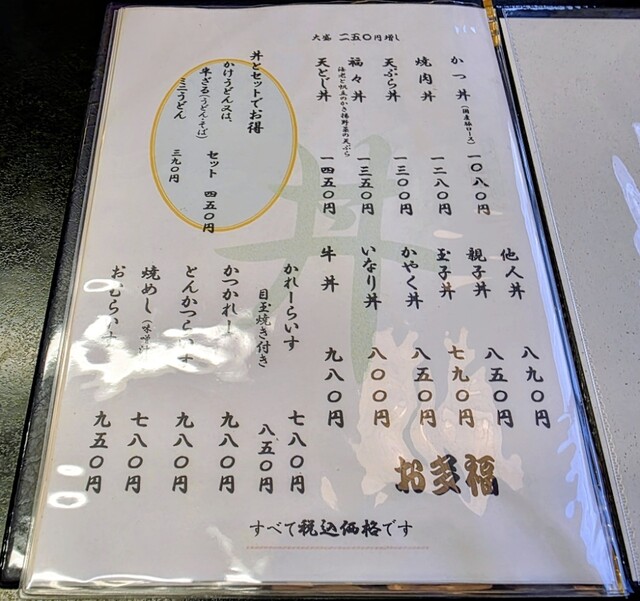 大盛 二五〇円増し
かつ丼（国産豚ロース） 一〇八〇円
焼肉丼 一二八〇円
天ぷら丼 一三〇〇円
福々丼 一三五〇円
海老と帆立のかき揚野菜の天ぷら
天とじ丼 一四五〇円
丼とセットでお得
かけうどん又は、
半ざる(うどん・そば)
セット 四五〇円
ミニうどん 三九〇円
丼
他人丼 八九〇円
親子丼 八五〇円
玉子丼 七九〇円
かやく丼 八五〇円
いなり丼 八〇〇円
牛丼 九八〇円
かれーらいす 七八〇円
目玉焼き付き 八五〇円
かつかれー 九八〇円
とんかつらいす 九八〇円
焼めし（味噌汁 七八〇円
おむらいす 九五〇円
お多福
すべて税込価格です